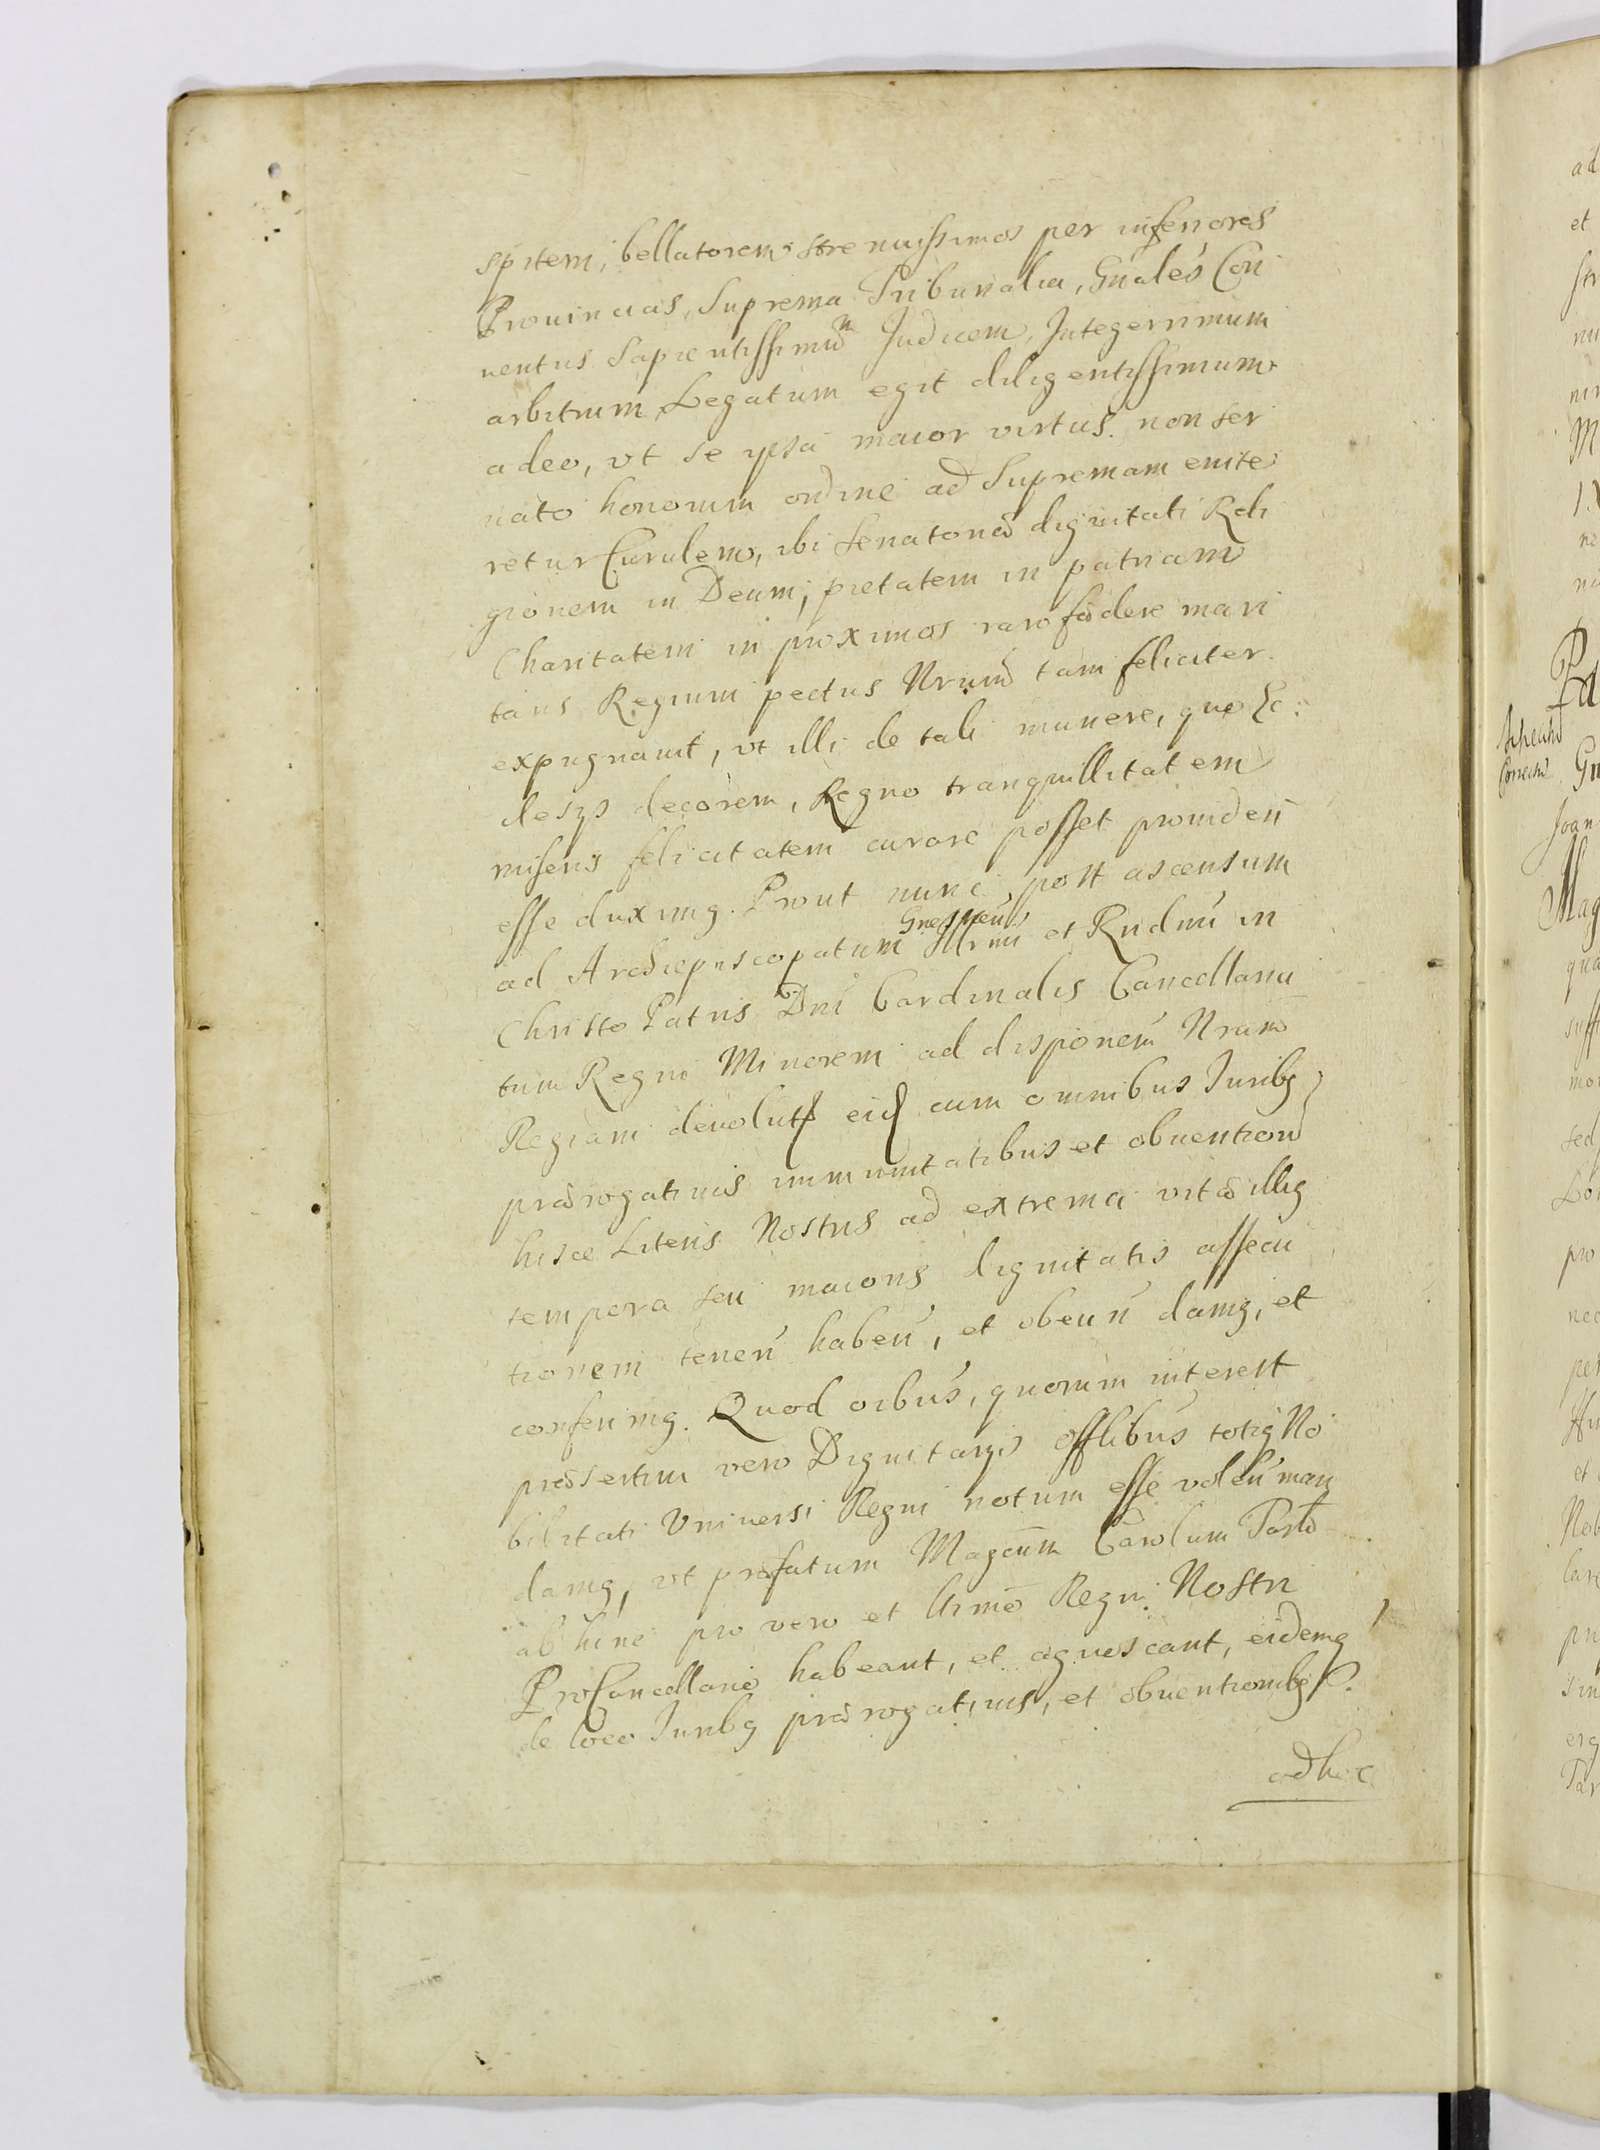 spitem, bellatorem strenuissimos per inferiores
Prouincias, Suprema Tribunalia, Gnales Con
uentus Sapientissimum Judicem, Integerrimum
arbitrum Legatum egit diligentissimum
adeo, vt se ipsa maior virtus non ser
uato honorum ordine ad Supremam enite
retur Curulem, ibi Senatoriae dignitati Reli
gionem in Deum, pietatem in patriam
Charitatem in proximos raro foedere mari
tans Regium pectus Nrum tam feliciter
expugnauit, vt illi de tali munere, quo Ec
clesys decorem, Regno tranquillitatem
miseris felicitatem curare posset prouiden
esse duximg. Prout nunc post ascensum
ad Archiepiscopatum Gnesnen Illrmi et Rndmi in
Christo Patris Dni Cardinalis Cancellaria
tum Regni Minorem ad disponem Nram
Regiam deuolut eid cum omnibus Juribg
praerogatiuis immunitatibus et obuention
hisce Literis Nostris ad extrema vitae illig
tempora seu maioris dignitatis assecu
tionem tenen haben, et obeun damg, et
conferimg. Quod oibus, quorum interest
praesertim vero Dignitarys offlibus totig No
bilitati Vniuersi Regni notum esse volen man
damg, vt praefatum Magcum Carolum Tarlo
ab hinc pro vero et ltimo Regni Nostri
ProCancellario habeant, et agnoscant, eidemg
de loco Juribg praerogatiuis, et obuentionibg
ad hoc
ad
et
Pa
Correctu
Gn
Joan
Mag
qua
suff
mor
sed
pro
nec
per
et
Nob
erg
Tar